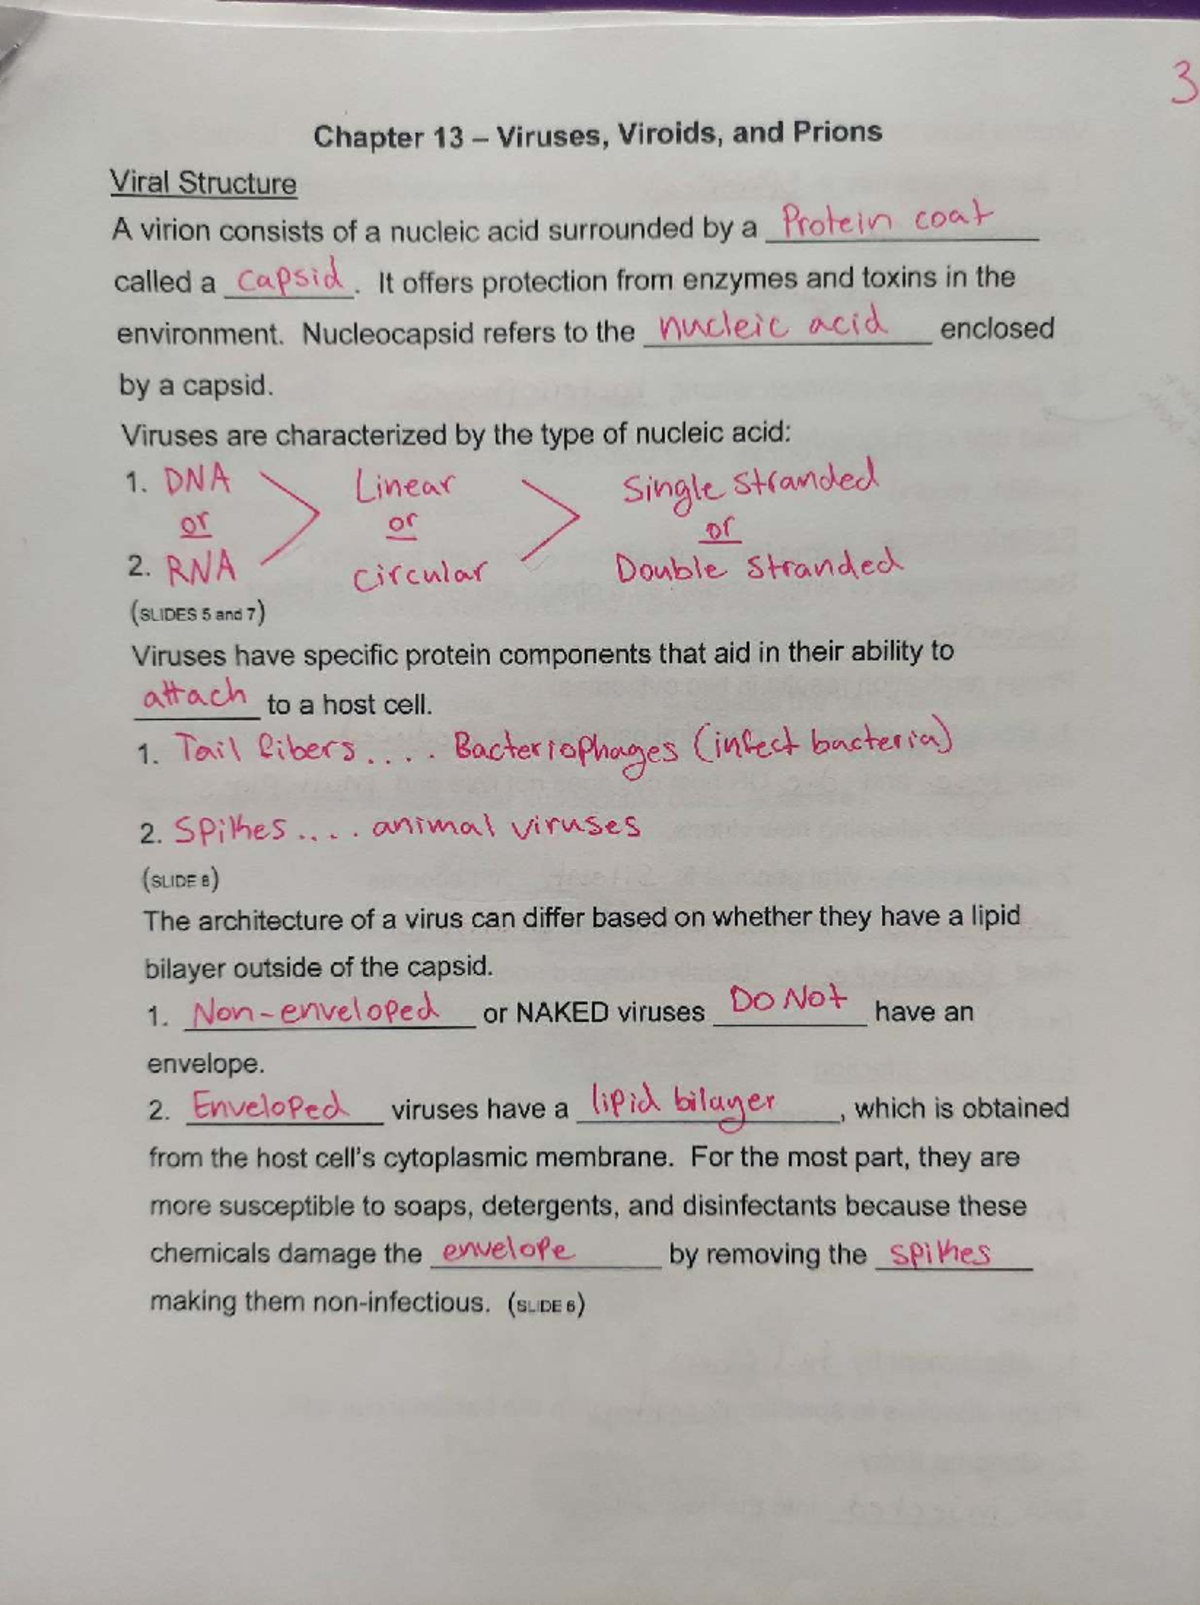 3
Chapter 13 – Viruses, Viroids, and Prions
Viral Structure
A virion consists of a nucleic acid surrounded by a Protein coat
called a capsid. It offers protection from enzymes and toxins in the
environment. Nucleocapsid refers to the nucleic acid enclosed
by a capsid.
Viruses are characterized by the type of nucleic acid:
1. DNA Linear Single stranded
or or or
2. RNA circular Double stranded
(SLIDES 5 and 7)
Viruses have specific protein components that aid in their ability to
attach to a host cell.
1. Tail fibers.... Bacteriophages (infect bacteria)
2. Spikes.... animal viruses
(SLIDE 8)
The architecture of a virus can differ based on whether they have a lipid
bilayer outside of the capsid.
1. Non-enveloped or NAKED viruses Do Not have an
envelope.
2. Enveloped viruses have a lipid bilayer, which is obtained
from the host cell's cytoplasmic membrane. For the most part, they are
more susceptible to soaps, detergents, and disinfectants because these
chemicals damage the envelope by removing the spikes
making them non-infectious. (SLIDE 6)